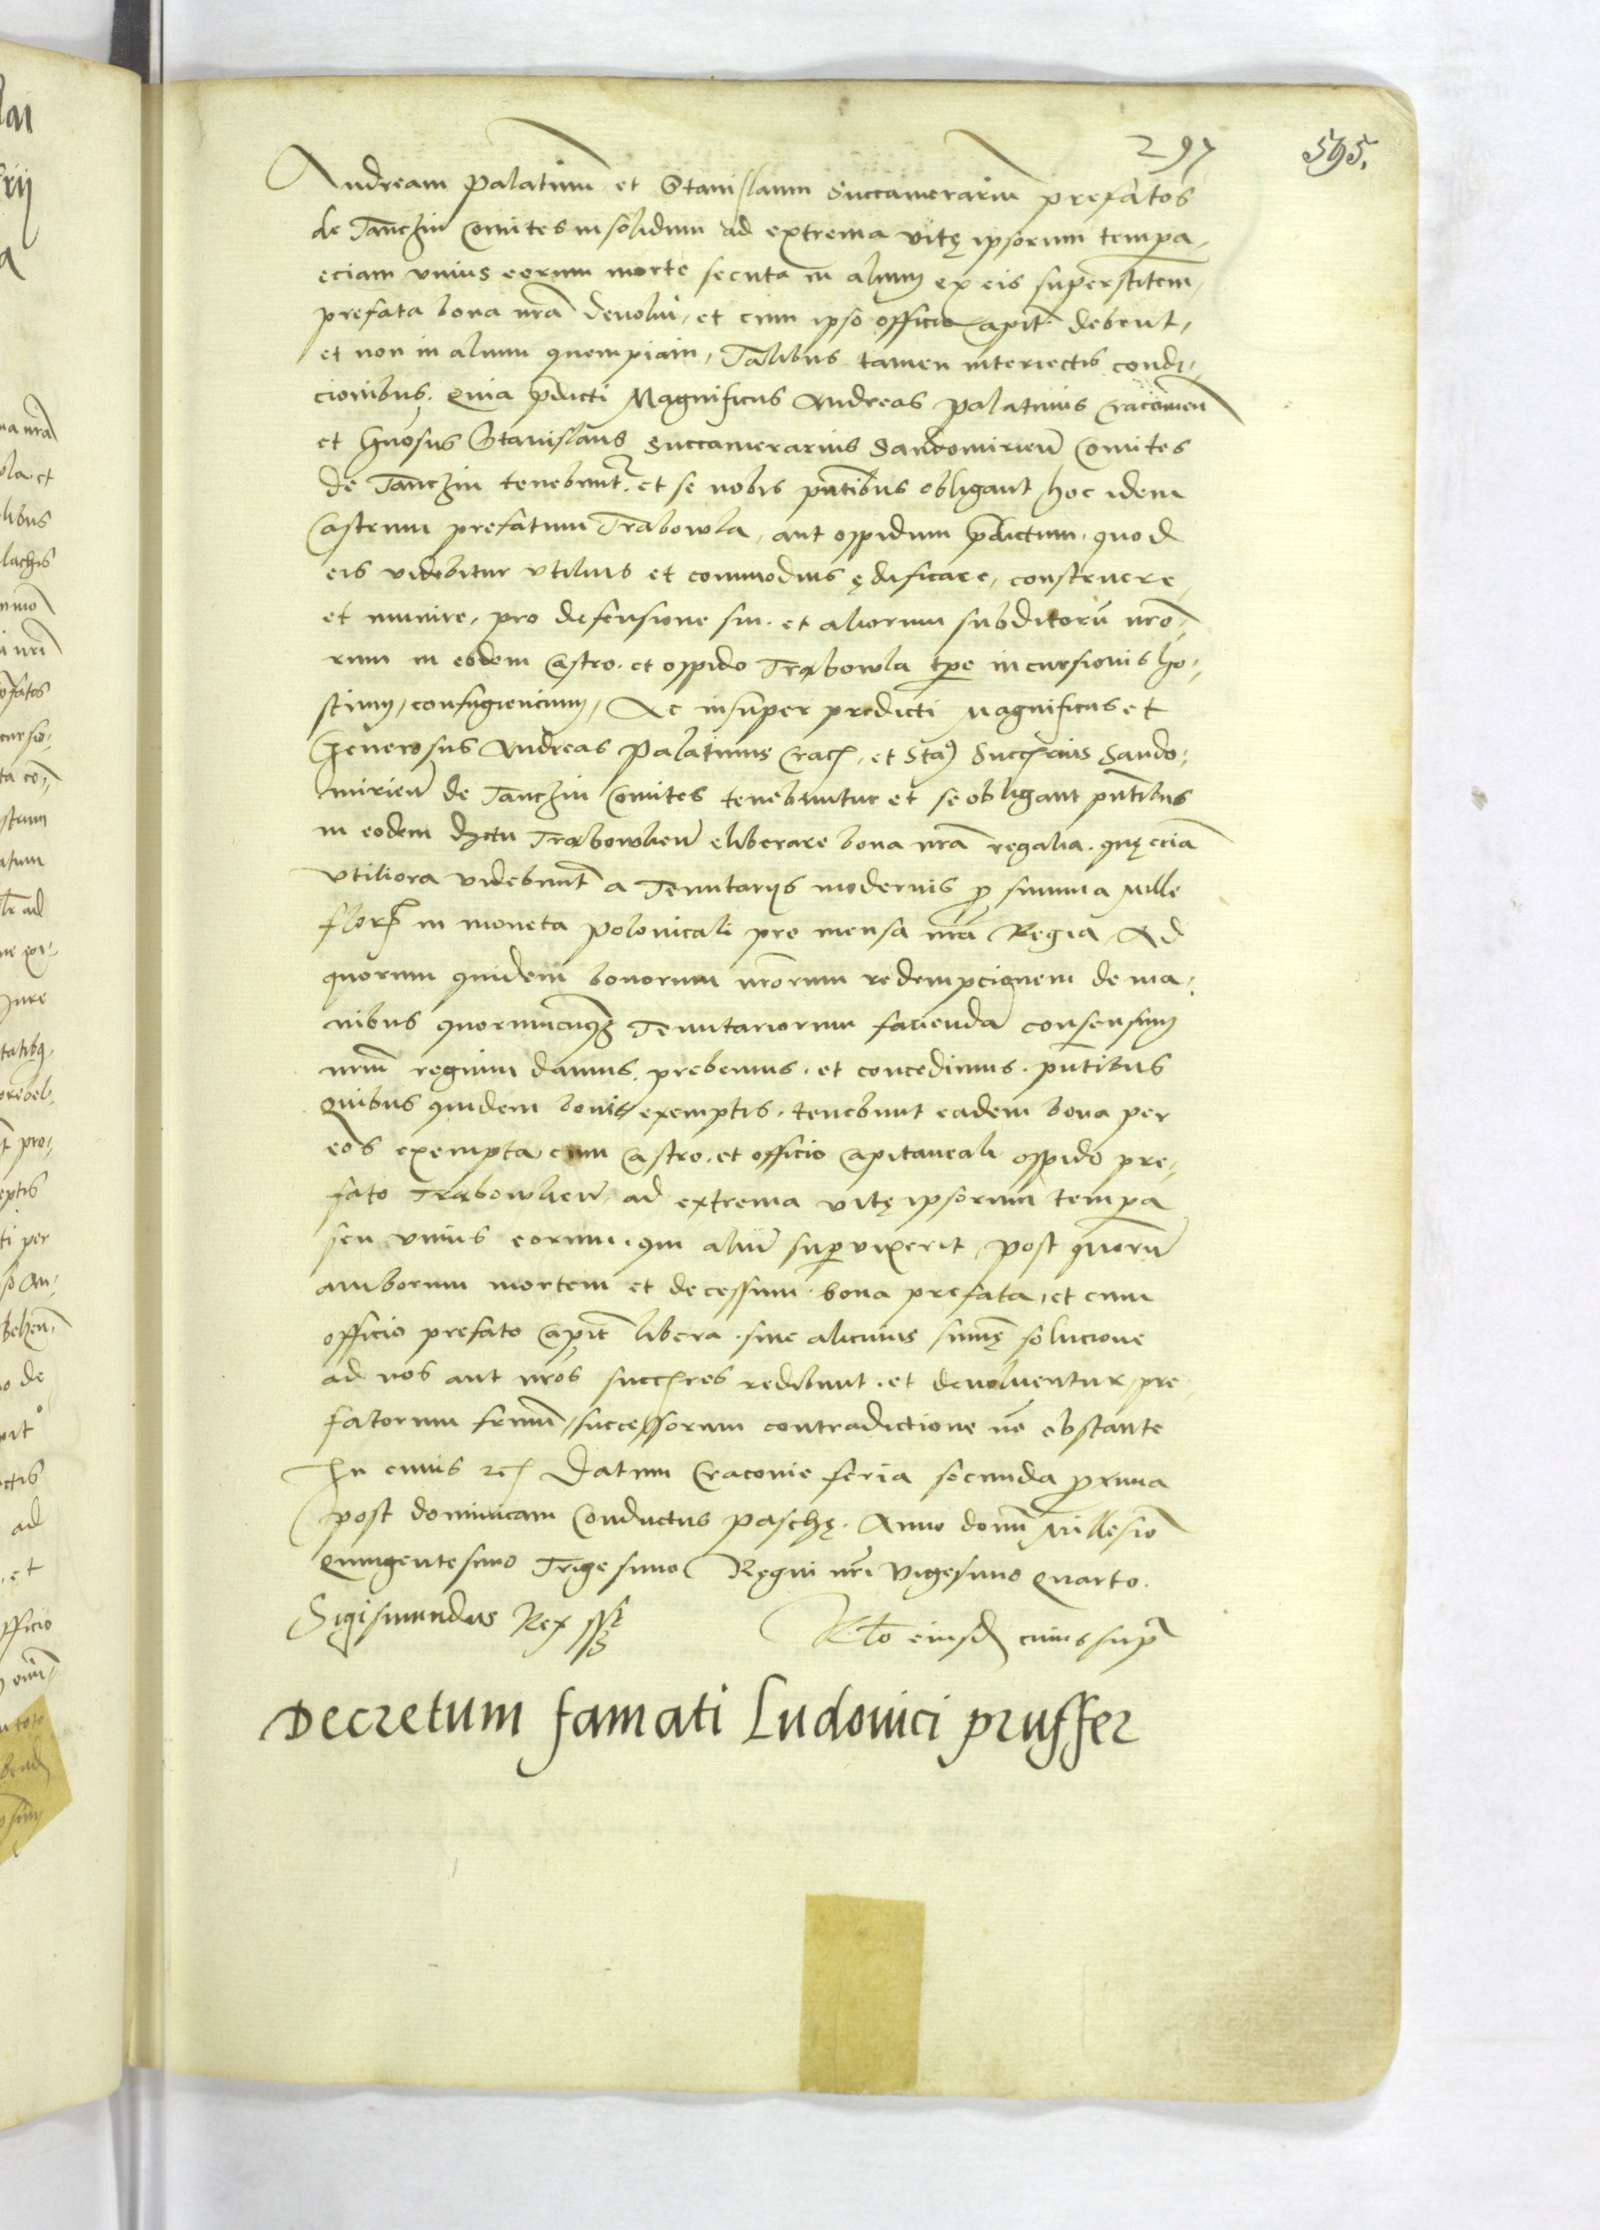 297 595.
Andream Palatinum et Stanislaum Succamerarium prefatos
de Tanczin Comites in solidum ad extrema vitę ipsorum tempa,
eciam vnius eorum morte secuta in alium ex eis superstitem,
prefata bona nrã deuolui, et cum ipso officio Capit. debent,
et non in alium quempiam, Talibus tamen interiectis condi-
cionibus. Quia pdicti Magnificus Andreas Palatinus Cracouien̄
et Gnosus Stanislaus Succamerarius Sandomirien̄ Comites
de Tanczin tenebunt. et se nobis pntibus obligant hoc idem
Castrum prefatum Trabowla, aut oppidum pdictum. quod
eis videbitur vtilius et commodius ędificare, construere,
et munire, pro defensione sui. et aliorum subditorũ nrõ-
rum in eodem Castro. et oppido Trabowla tpe incursionis ho-
stium, confugiencium, Ac insuper predicti Magnificus et
Generosus Andreas Palatinus Crac, et Sta Succrius Sando-
mirien̄ de Tanczin Comites tenebuntur et se obligant pntibus
in eodem Dctu Trabowlien̄ eliberare bona nrã regalia. quę eciã
vtiliora videbunt a Tenutarijs modernis p summa Mille
flor in moneta Polonicali pro mensa nrã Regia, Ad
quorum quidem bonorum nrorum redempcionem de ma-
nibus quorumcuqz Tenutariorum facienda consensum
nrum regium damus, prebemus. et concedimus. pntibus
Quibus quidem bonis exemptis. tenebunt eadem bona per
eos exempta cum Castro. et officio Capitaneali oppido pre-
fato Trabowlien̄, ad extrema vitę ipsorum tempa
seu vnius eorum. qui aliũ supuixerit, post quorũ
amborum mortem et decessum. bona prefata, et cum
officio prefato Capit libera. sine alicuius summę solucione
ad nos aut nros succres redibunt. et deuoluentur, pre-
fatorum frum, successorum contradictione nõ obstante
In cuius rei Datum Cracouie feria secunda proxima
post dominicam Conductus Paschę. Anno domi Millesio
Quingentesimo Trigesimo Regni nri Vigesimo Quarto.
Sigismundus Rex sst
Rlo eiusd cuius sup
Decretum famati Ludouici pruffer